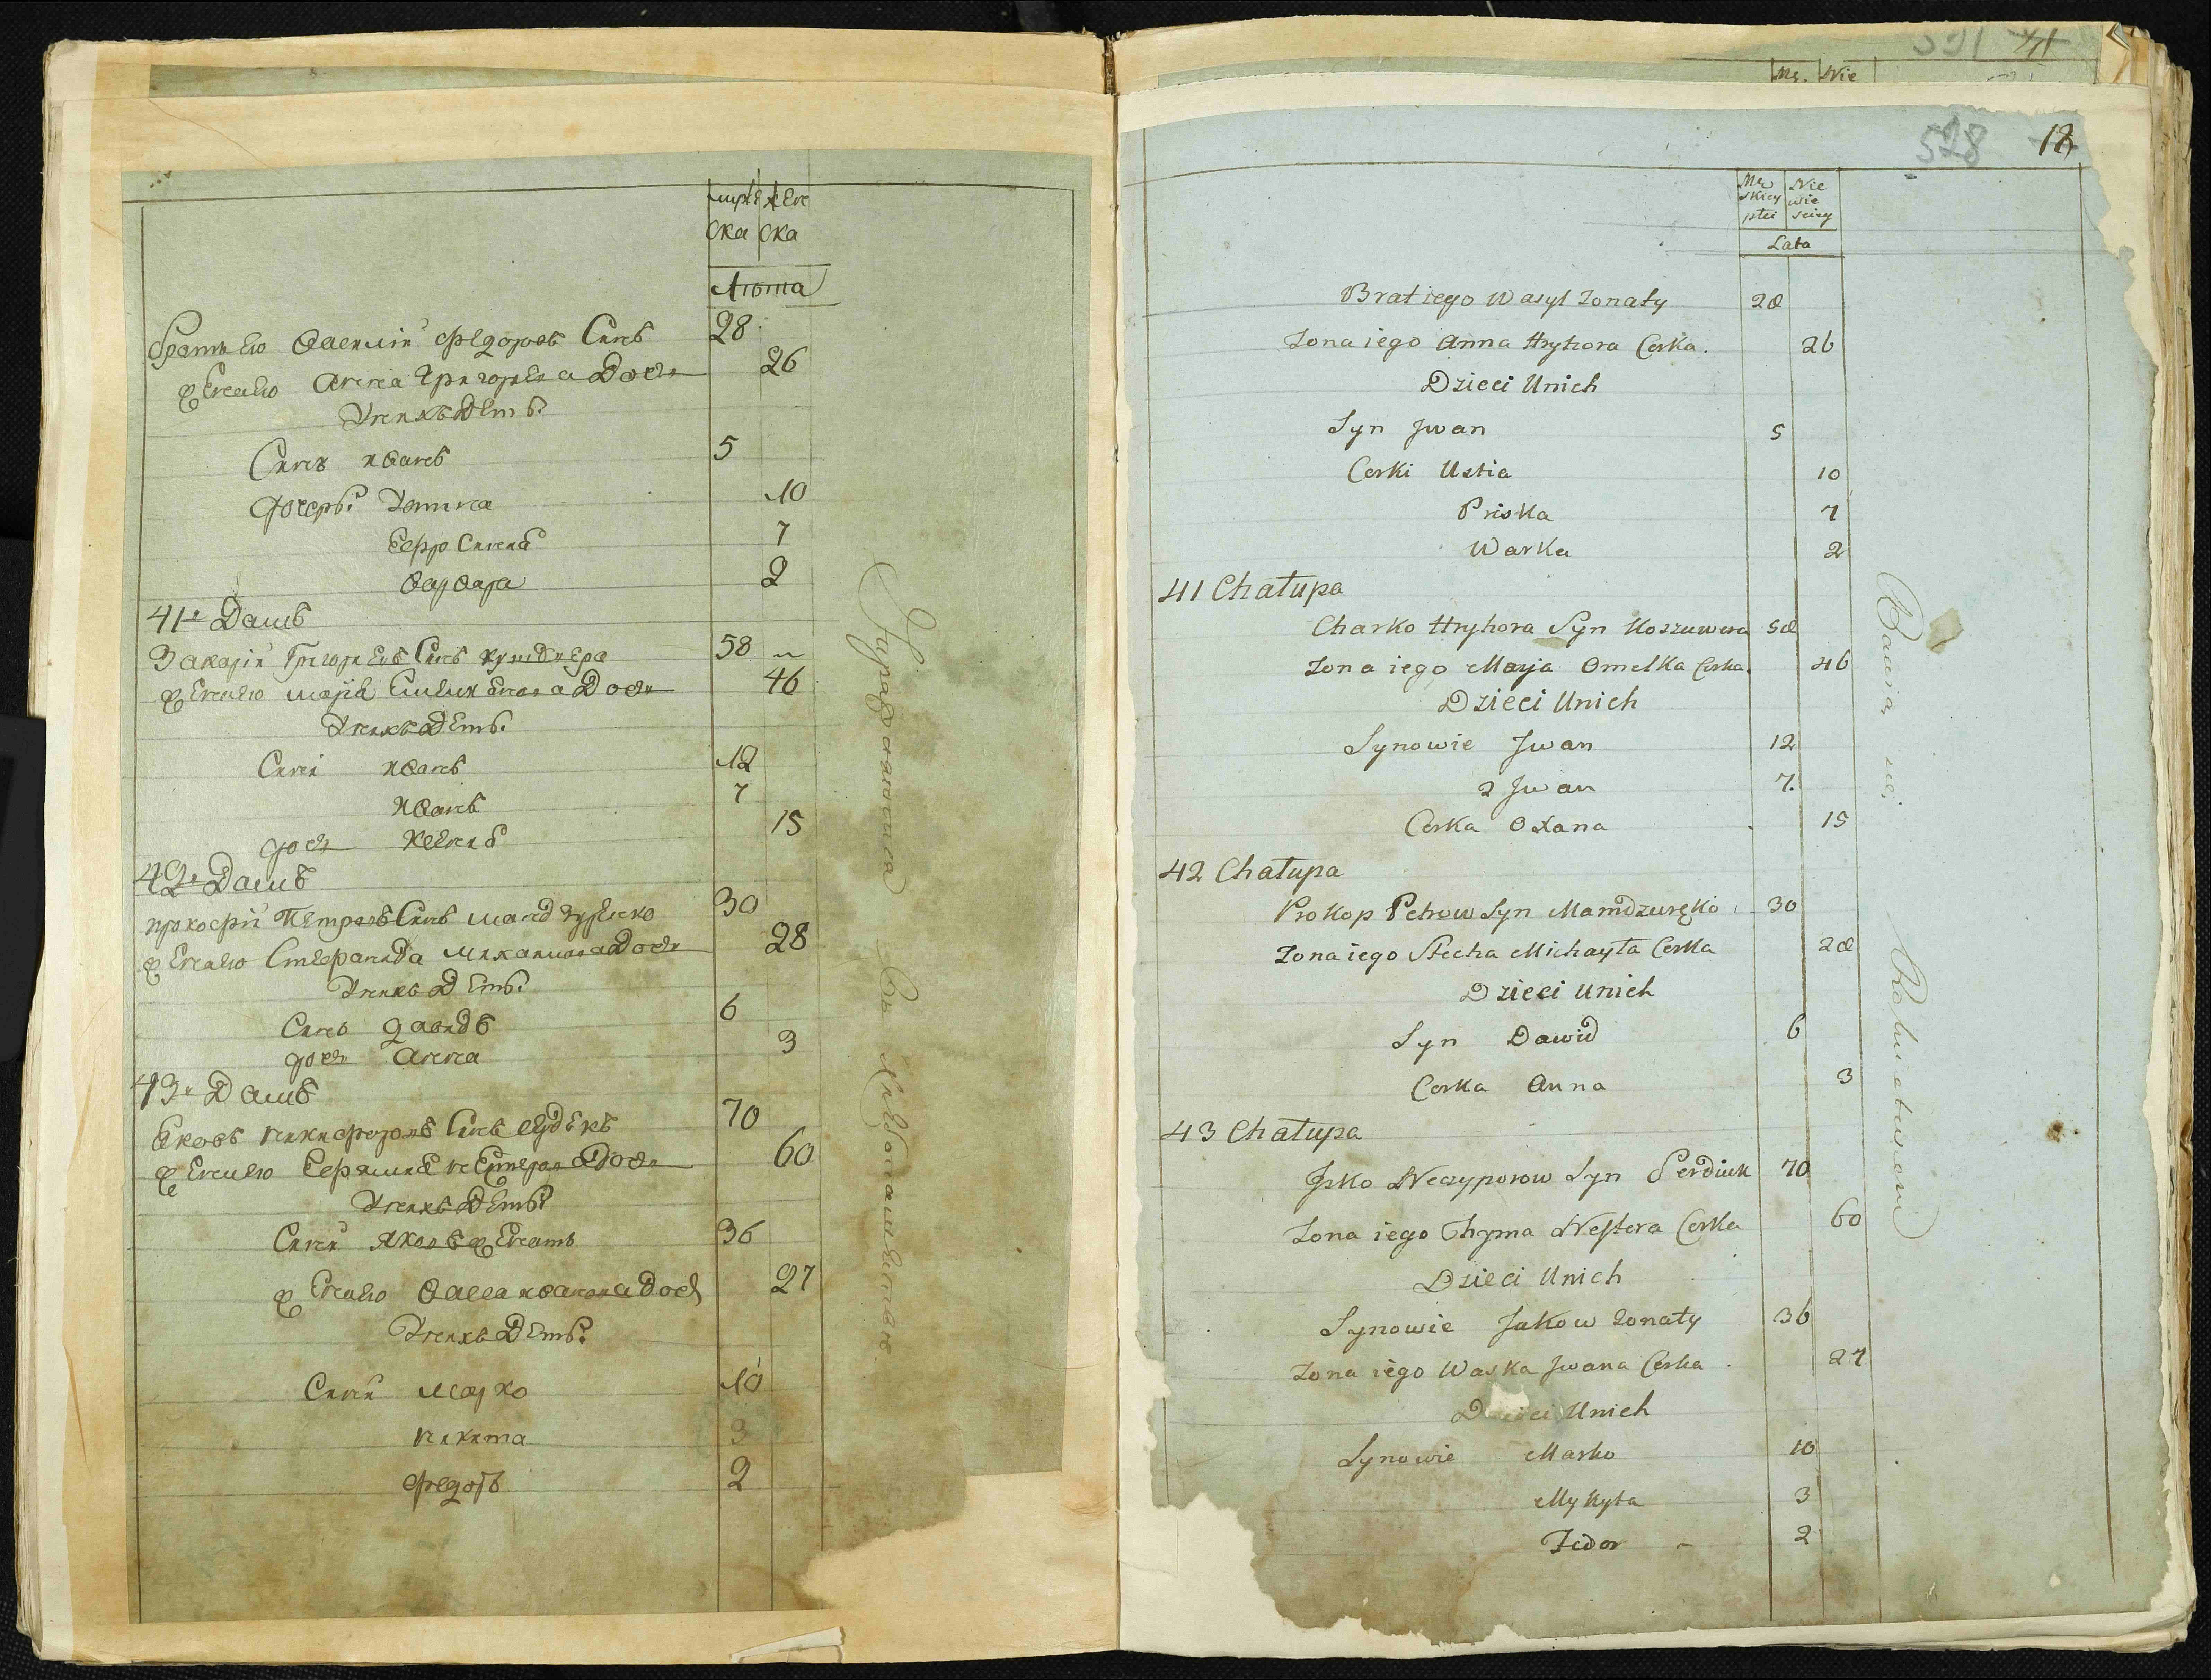 муже жен
ска ска
Лѣта
братъ его Василій Федоровъ Синъ 28
жена его Анна Григорьева Дочь 26
У нихъ Дети
Синъ Иванъ 5
дочери Устина 10
Ефросиния 7
Варвара 2
41й Домъ
Захарій Григорьевъ Синъ 58
жена его Марія Емилианова Дочь 46
У нихъ Дети
Сини Иванъ 12
Иванъ 7
дочь Ксения 15
42й Домъ
Прокофій Петровъ Синъ Мандзуренко 30
жена его Стефанида Михайлова Дочь 28
У нихъ Дети
Синъ Давидъ 6
дочь Анна 3
43й Домъ
Яковъ Никифоровъ Синъ 70
жена его Нестерова Дочь 60
У нихъ Дети
Сини Яковъ женатъ 36
жена его Васса Иванова Дочь 27
У нихъ Дети
Сини Марко 10
Никита 3
Федоръ 2
521 41
Mę. Nie
528 12
Mę Nie
skiey wie
płci sciey
Lata
Brat iego Wasyl Zonaty 28
Zona iego Anna Hryhora Corka. 26
Dzieci Unich
Syn Jwan 5
Corki Ustia 10
Priska 7
Warka 2
41 Chałupa
Charko Hryhora Syn Koszuwera 58
Zona iego Marja Omelka Corka. 46
Dzieci Unich
Synowie Jwan 12
2 Jwan 7.
Corka Oxana 15
42 Chałupa
Prokop Petrow Syn Mamdzureko 30
Zona iego Stecha Michayła Corka 28
Dzieci Unich
Syn Dawid 6
Corka Anna 3
43 Chałupa
Jsko Neczyporow Syn Serdiuk 70
Zona iego Chyma Nestera Corka 60
Dzieci Unich
Synowie Jakow Zonaty 36
Zona iego Waska Jwana Corka 27
Dzieci Unich
Synowie Marko 10
Mykyta 3
Fedor 2